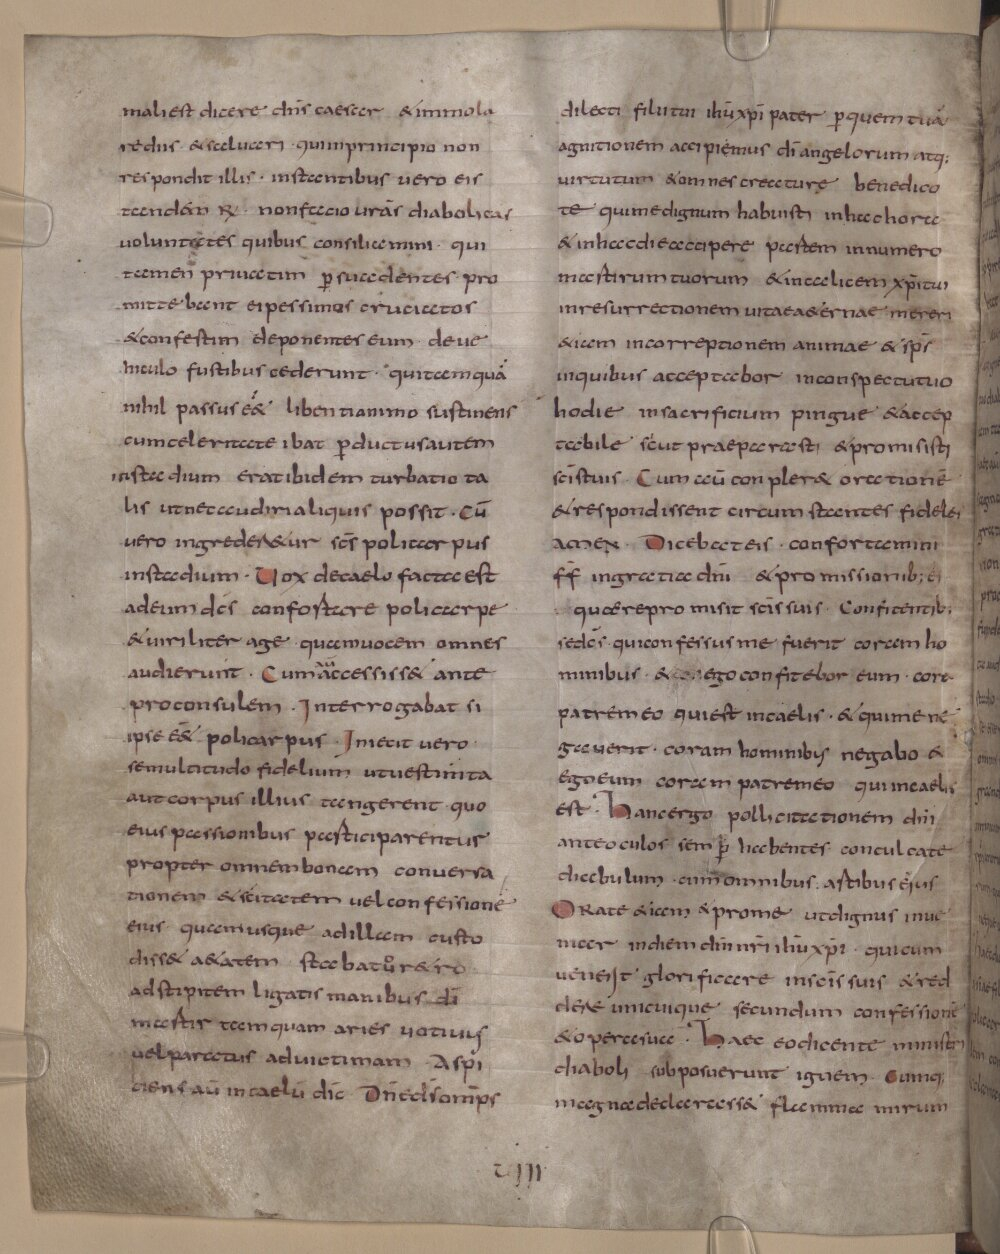 mali est dicere dn̄s caesar & immola
re diis · & saluari · qui in principio non
respondit illis · instantibus vero eis
tandēm R̄ · non facio urās diabolicas
voluntates quibus consiliamini · qui
tamen privatim p̲ suadentes pro
mittebant ei pessimos cruciatos
& confestim deponentes eum de ve
hiculo fustibus cederunt · qui tamquā
nihil passus eē& libenti animo sustinens
cum celeritate ibat p̲ductus autem
in stadium erat ibidem turbatio ta
lis ut nec audiri aliquis possit · Cū
vero ingrederetur sc̄s policarpus
in stadium · Vox de caelo facta est
ad eum dc̄s confortare policarpe
& viriliter age · quam vocem omnes
audierunt · Cum aū accessiss& ante
proconsulem · Interrogabat si
ipse eē& policarpus · Iniecit vero
se multitudo fidelium ut vestimta
aut corpus illius tangerent quo
eius passionibus participarentur
propter omnem bonam conversa
tionem & scitatem vel confessionē
eius quamusque ad illam custo
diss& a&atem · stabat ur & retro
ad stipitem ligatis manibus dī
martir tamquam aries votivus
vel paratus ad victimam · Aspi
ciens aū in caelū dic̄ · Dn̄e ds̄ omp̄s
dilecti filii tui ihū xp̄i pater p̲ quem tuā
agnitionem accipiemus dī angelorum atq;
virtutum & omnes creature benedico
te qui me dignum habuisti in hac hora
& in hac die accipere partem in numero
martirum tuorum & in calicem xp̄i tui
in resurrectionem vitae a&ernae mereri
&iam incorreptionem animae & sp̄s
in quibus acceptabor in conspectu tuo
hodie in sacrificium pingue & accep
tabile sicut praeparasti & promisisti
sc̄is tuis · Cum eaū conpler& orationē
& respondissent circumstantes fideles
amen · Dicebat eis · confortamini
ff in gratia dn̄i & promissionib; ei
quae repromisit sc̄is suis · Confitentib;
se dc̄s · qui confessus me fuerit coram ho
minibus · & ego confitebor eum · cora
patre meo qui est in caelis · & qui me ne
gaverit · coram hominibus negabo &
ego eum coram patre meo qui in caelis
est · Hanc ergo pollicitationem dn̄i
ante oculos semp̲ habentes conculcate
diabulum · cum omnibus astibus eius
Orate &iam & pro me ut dignus inve
niar in diem dn̄i nr̄i ihū xp̄i · qui cum
venerit glorificare in sc̄is suis & red
dere unicuique secundum confessionē
& opera sua · Haec eo dicente ministri
diaboli subposuerunt ignem · Cumq;
magna declarass& flamma mirum
VIII